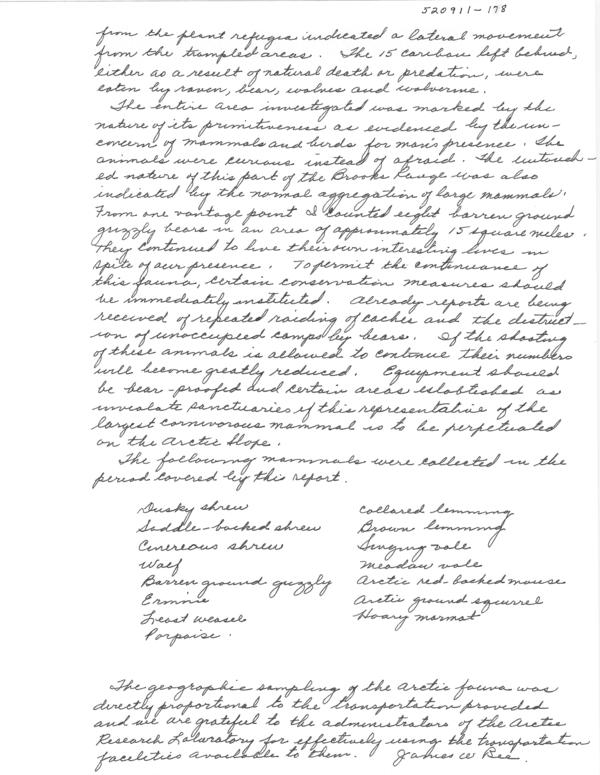 520911-178
from the plant refugia indicated a lateral movement
from the trampled areas. The 15 caribou left behind,
either as a result of natural death or predation, were
eaten by raven, bear, wolves and wolverine.
The entire area investigated was marked by the
nature of its primitiveness as evidenced by the un-
concern of mammals and birds for man's presence. The
animals were curious instead of afraid. The untouch-
ed nature of this part of the Brooks Range was also
indicated by the normal aggregation of large mammals.
From one vantage point I counted eight barren ground
grizzly bears in an area of approximately 15 square miles.
They continued to live their own interesting lives in
spite of our presence. To permit the continuance of
this fauna, certain conservation measures should
be immediately instituted. Already reports are being
received of repeated raiding of caches and the destruct-
ion of unoccupied camps by bears. If the shooting
of these animals is allowed to continue their numbers
will become greatly reduced. Equipment should
be bear-proofed and certain areas established as
inviolate sanctuaries if this representative of the
largest carnivorous mammal is to be perpetuated
on the Arctic Slope.
The following mammals were collected in the
period covered by this report.
Dusky shrew
Saddle-backed shrew
Cinereous shrew
Wolf
Barren ground grizzly
Ermine
Least weasel
Porpoise.
Collared lemming
Brown lemming
Singing vole
Meadow vole
Arctic red-backed mouse
Arctic ground squirrel
Hoary marmot
The geographic sampling of the Arctic fauna was
directly proportional to the transportation provided
and we are grateful to the administrators of the Arctic
Research Laboratory for effectively using the transportation
facilities available to them. James W Bee